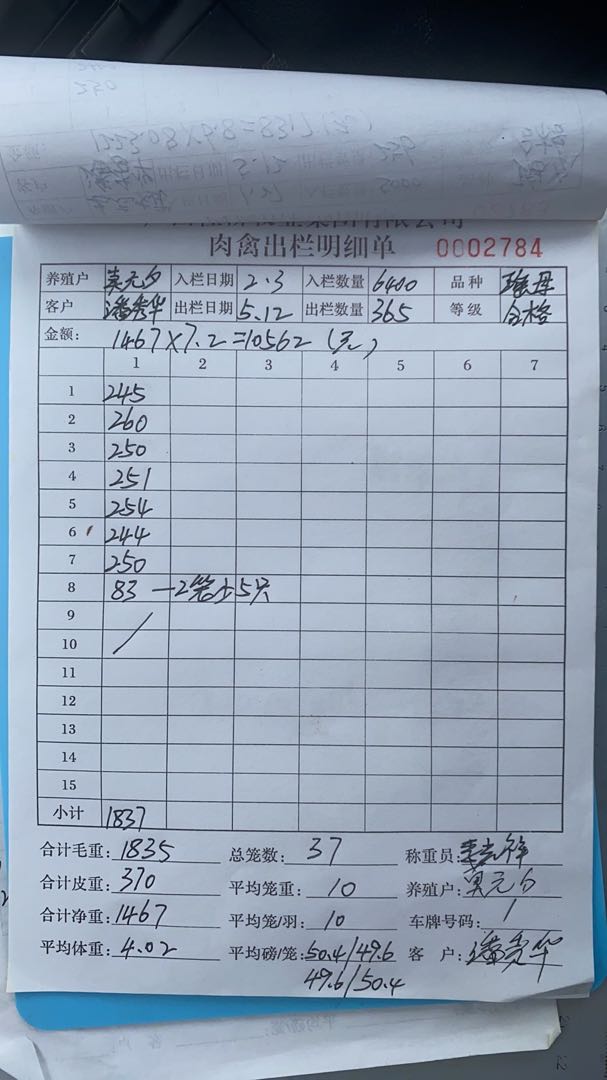 肉禽出栏明细单 0002784
养殖户 莫元夕 入栏日期 2.3 入栏数量 6400 品种
客户 潘秀华 出栏日期 5.12 出栏数量 365 等级 合格
金额: 1467×7.2=10562(元)
1 2 3 4 5 6 7
1 245
2 260
3 250
4 251
5 254
6 244
7 250
8 83 —2笼+5只
9
10
11
12
13
14
15
小计 1837
合计毛重: 1835 总笼数: 37 称重员:
合计皮重: 370 平均笼重: 10 养殖户: 莫元夕
合计净重: 1467 平均笼/羽: 10 车牌号码: /
平均体重: 4.02 平均磅/笼: 50.4/49.6 客 户: 潘秀华
49.6/50.4